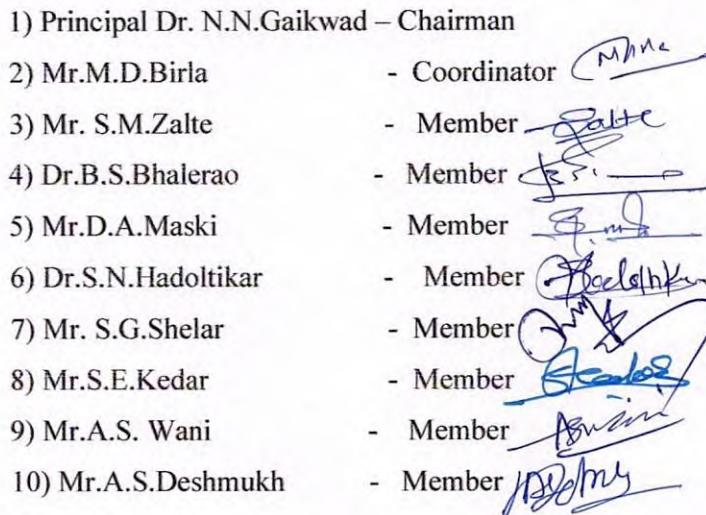 1) Principal Dr. N.N.Gaikwad – Chairman
2) Mr.M.D.Birla - Coordinator
3) Mr. S.M.Zalte - Member Zalte
4) Dr.B.S.Bhalerao - Member
5) Mr.D.A.Maski - Member
6) Dr.S.N.Hadoltikar - Member
7) Mr. S.G.Shelar - Member
8) Mr.S.E.Kedar - Member
9) Mr.A.S. Wani - Member
10) Mr.A.S.Deshmukh - Member